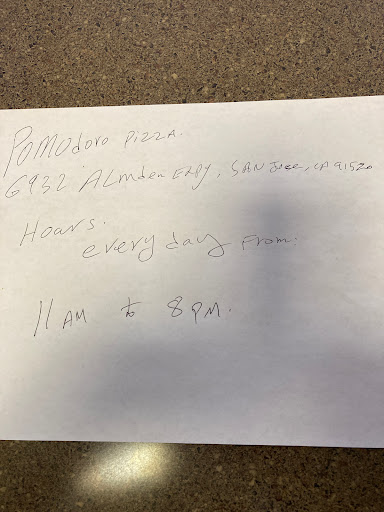 Pomodoro Pizza.
6932 Almden Expy, San Jose, CA 91520
Hours.
every day From:
11 AM to 8 PM.